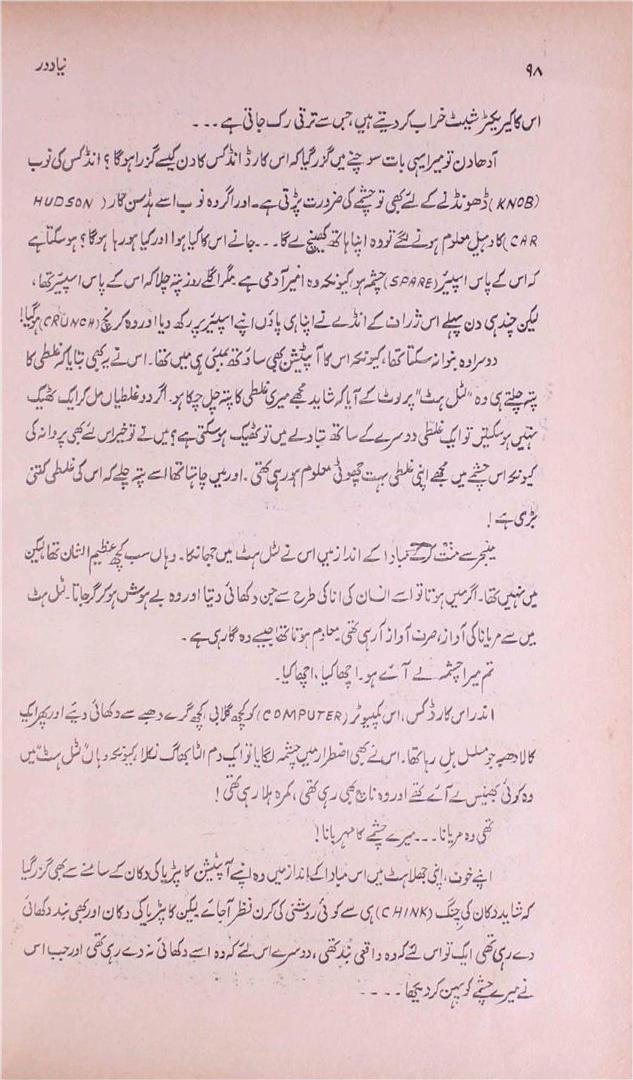 ۹۸ نیا دور
اس کا کیریکٹر شیٹ خراب کر دیتے ہیں، جس سے ترقی رک جاتی ہے ۔ ۔ ۔
آدھا دن تو میرا یہی بات سوچنے میں گزر گیا کہ اس کارڈ انڈکس کا دن کیسے گزرا ہوگا ؟ انڈکس کی نوب
(KNOB) ڈھونڈنے کے لئے بھی تو چشمے کی ضرورت پڑتی ہے۔ اور اگر وہ نوب اسے ہڈسن کار ( HUDSON
CAR) کا وہیل معلوم ہونے لگے تو وہ اپنا ہاتھ کھینچ لے گا ۔۔۔ جانے اس کا کیا ہوا اور کیا ہو رہا ہوگا ؟ ہو سکتا ہے
کہ اس کے پاس اسپیئر (SPARE) چشمہ ہو، کیونکہ وہ امیر آدمی ہے مگر اگلے روز پتہ چلا کہ اس کے پاس اسپیئر تھا،
لیکن چند ہی دن پہلے اس ژراف کے انڈے نے اپنا ہی پاؤں اپنے اسپیئر پر رکھ دیا اور وہ کرنچ (CRUNCH) ہو گیا!
دوسرا وہ بنوا نہ سکتا تھا، کیونکہ اس کا آپٹیشن بھی ساؤتھ بمبئی ہی میں تھا۔ اس نے یہ بھی بتایا کہ غلطی کا
پتہ چلتے ہی وہ "لٹل ہٹ" پر لوٹ کے آیا کہ شاید مجھے میری غلطی کا پتہ چل چکا ہو۔ اگر دو غلطیاں مل کر ایک ٹھیک
نہیں ہو سکتیں تو ایک غلطی دوسرے کے ساتھ تبادلے میں تو ٹھیک ہو سکتی ہے؟ میں نے تو خیر اس لئے بھی پروا نہ کی
کیونکہ اس چشمے میں مجھے اپنی غلطی بہت چھوٹی معلوم ہو رہی تھی ۔ اور میں چاہتا تھا اسے پتہ چلے کہ اس کی غلطی کتنی
بڑی ہے !
منیجر سے منت کر کے مبادا کے انداز میں اس نے لٹل ہٹ میں جھانکا۔ وہاں سب کچھ عظیم الشان تھا لیکن
میں نہیں تھا۔ اگر میں ہوتا تو اسے انسان کی انا کی طرح سے جن دکھائی دیتا اور وہ بے ہوش ہو کر گر جاتا۔ لٹل ہٹ
میں سے مریانا کی آواز، صرف آواز آ رہی تھی معلوم ہوتا تھا جیسے وہ گا رہی ہے ۔
تم میرا چشمہ لے آئے ہو۔ اچھا کیا، اچھا کیا۔
اندر اس کارڈکس، اس کمپیوٹر (COMPUTER) کو کچھ گلابی، کچھ گرے دھبے سے دکھائی دیئے اور پھر ایک
کالا دھبہ جو مسلسل ہل رہا تھا۔ اس نے بھی اضطرار میں چشمہ لگایا تو ایک دم الٹا بھاگ نکلا، کیونکہ وہاں "لٹل ہٹ" میں
وہ کوئی بھینس لے آئے تھے اور وہ ناچ بھی رہی تھی، کمرہ ہلا رہی تھی !
تھی وہ مریانا ۔۔۔ میرے چشمے کا مہربانا !
اپنے خوف، اپنی جھلاہٹ میں اس مبادا کے انداز میں وہ اپنے آپٹیشن کاپڑیا کی دکان کے سامنے سے بھی گزر گیا
کہ شاید دکان کی چنک (CHINK) ہی سے کوئی روشنی کی کرن نظر آ جائے لیکن کاپڑیا کی دکان اور بھی بند دکھائی
دے رہی تھی ایک تو اس لئے کہ وہ واقعی بند تھی، دوسرے اس لئے کہ وہ اسے دکھائی نہ دے رہی تھی اور جب اس
نے میرے چشمے کو پہن کر دیکھا ۔ ۔ ۔ ۔